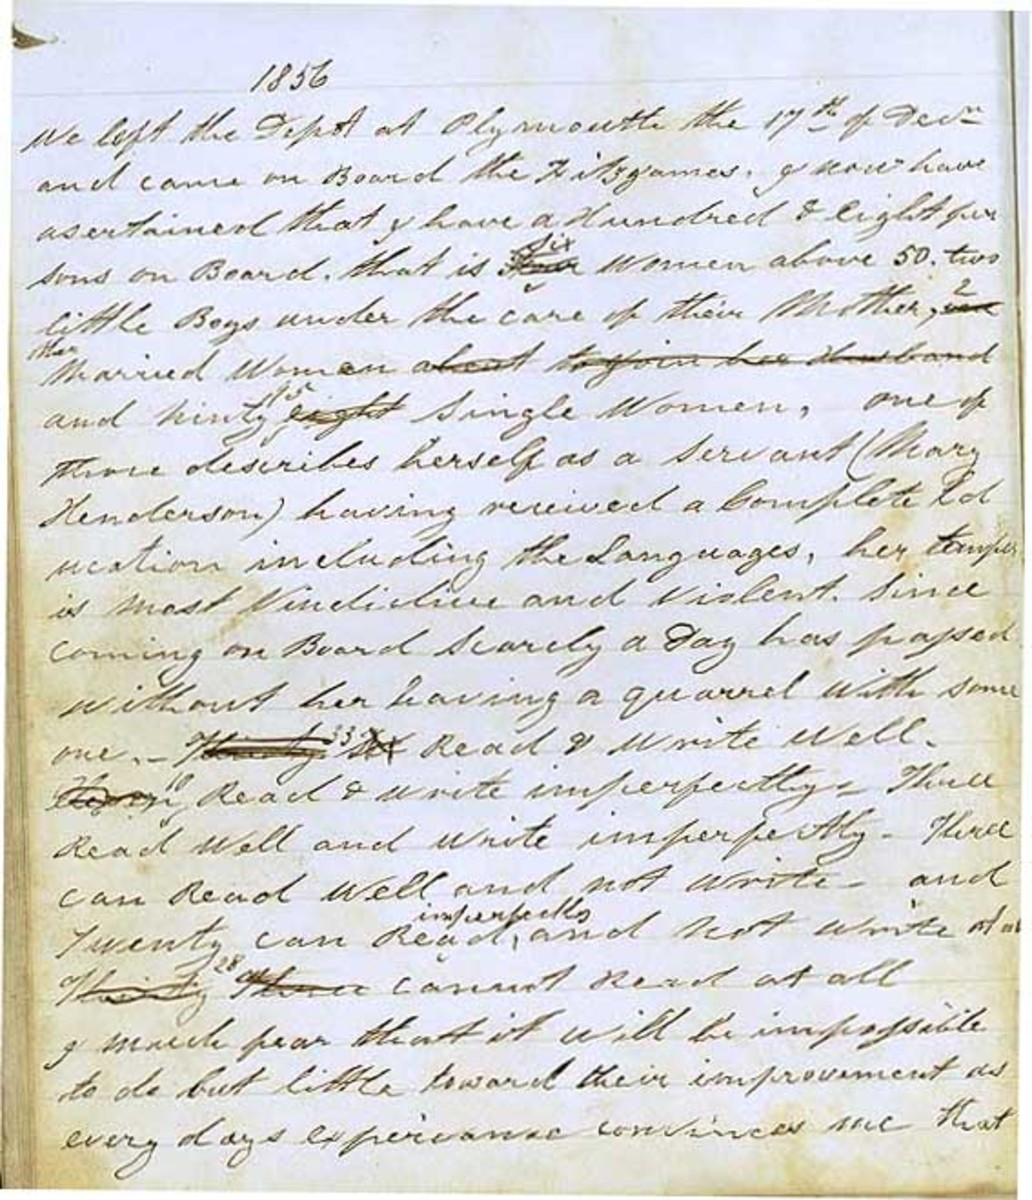 1856
We left the Depot at Plymouth the 17th of Decr
and came on Board the Fitzjames. I now have
asertained that I have a Hundred & Eight per
sons on Board. that is Six Women above 50. two
little Boys under the care of their Mother, 2
Married Women about to join her Husband
and ninty 95 eight Single Women, one of
them describes herself as a Servant (Mary
Henderson) having received a Complete Ed
ucation including the Languages, her temper
is most Vindictive and Violent. Since
coming on Board Scarely a Day has passed
without her having a quarrel with some
one. - Thirty 33 six Read & Write Well.
Read & write imperfectly - Three
Read Well and write imperfectly - Three
can Read Well and not write - and
Twenty can Read imperfectly, and not write at all
Thirty 28 Three cannot Read at all
I much fear that it will be impossible
to do but little toward their improvement as
every days experiance convinces me that